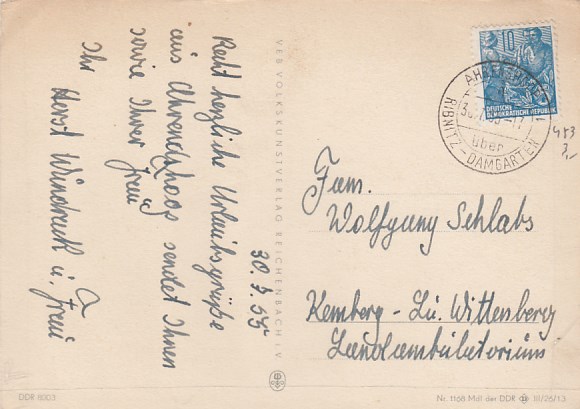 30.7.55
Recht herzliche Urlaubsgrüße
aus Ahrenshoop sendet Ihnen
sowie Ihrer Frau
Ihr Horst Windruck u. Frau
VEB VOLKSKUNSTVERLAG REICHENBACH i. V.
10
DEUTSCHE
DEMOKRATISCHE REPUBLIK
über
RIBNITZ-DAMGARTEN 1
483
3,-
Fam.
Wolfgang Schlabs
Kemberg - Lu. Wittenberg
Landambulatorium
DDR 8003
Nr. 1168 MdI der DDR III/26/13